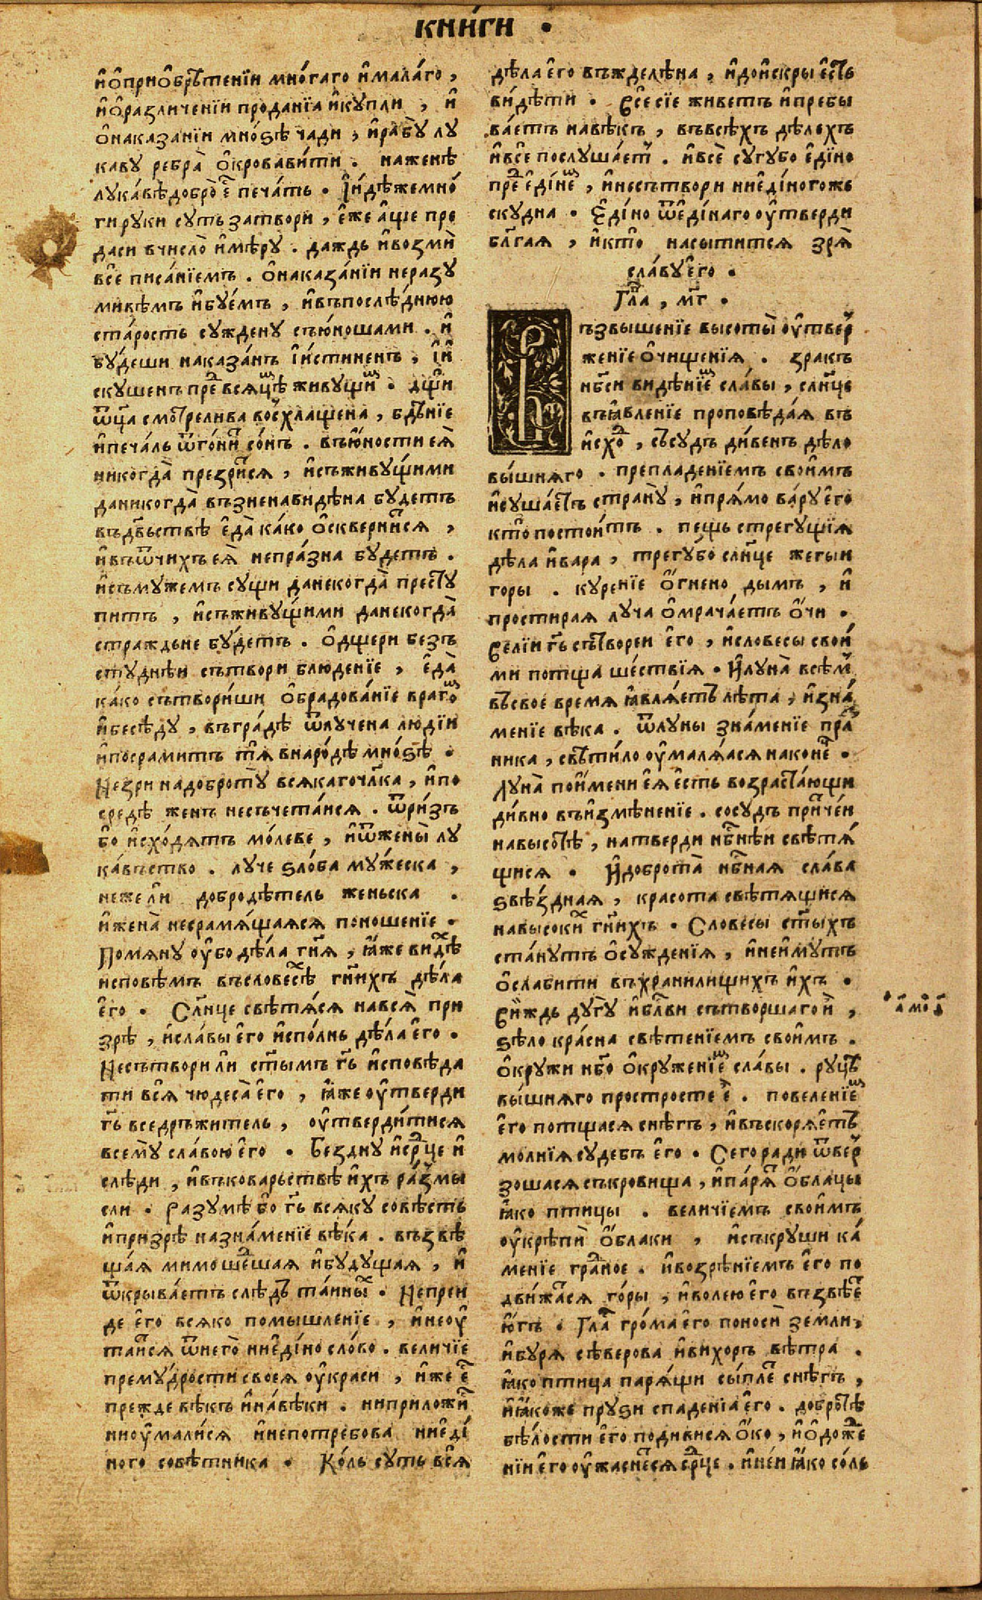 книги .
иѻприѡбрѣтенїи мно́гаго и҆мала́го ,
иѻразличенїи проданїа и҆купли , и҆
ѻнаказанїи мно́ѕѣ чади , и҆рабꙋ лꙋ
кавꙋ ребра̀ ѻкровавити . наженѣ
лꙋка́вѣдобро̀ е҆ⷭ печа́ть . І҆и҆дѣ́жемно́
ги рꙋки сꙋть затвори , е҆же а҆ще пре
даси вчисло̀ и҆мѣ́рꙋ . даждь и҆возмѝ
все̑ писа́нїемъ . ѻнаказа́нїи неразꙋ
мивѣмъ и҆бꙋе́мъ , и҆въпослѣ́днюю
ста́рость сꙋжденꙋ съю́ношами . и҆
бꙋ́деши наказа́нъ І҆и҆стиненъ , І҆и҆
скꙋшенъ преⷣ всяцѣⷨ живꙋщиⷨ . дщи
ѿца смотрелива
и҆печа́ль ѿго́ниⷮ со́нъ . въю́ности ея̀
никогда̀ презриⷮся , и҆съживꙋ́щими
даникогда̀ възненавидѣна бꙋдетъ
въдѣвьствѣ е҆да̀ ка́ко ѻсквернитⷭся ,
и҆въѿчихъ ея̀ непра́зна бꙋдетъ .
и҆съмꙋжемъ сꙋщи данекогда̀ престꙋ
питъ , и҆съживꙋ́щими данекогда̀
страждьне бꙋдетъ . Ѻдщери безъ
стꙋднѣи сътвори блюденїе , е҆да̀
ка́ко сътвори́ши ѻбрадова́нїе врагоⷨ
и҆бесѣ́дꙋ , въгра́дѣ ѿлꙋчена людїи
и҆посрамитъ тя внаро́дѣ мно́ѕѣ .
Незри надобротꙋ всякагочл҃ка , и҆по
средѣ женъ несъчета́ися . ѿри́зъ
бо и҆схо́дятъ мо́леве , и҆ѿжены̀ лꙋ
ка́въство . лꙋче ѕло́ба мꙋ́жеска ,
нежели добродѣтель женьска .
и҆жена̀ несрамя́щаяся поношенїе .
Помянꙋ ᲂу҆бо дѣ́ла гн҃я , ꙗ҆же видⷯѣ
исповѣмъ въсловесⷯѣ гн҃ихъ дѣла
е҆го . Сл҃нце свѣтяся нався̀ при
зрѣ , и҆сла́вы е҆го и҆спо́лнь дѣ́ла е҆го .
Несътвори ли ст҃ымъ гь҃ и҆сповѣда
ти вся̑ чюдеса̀ е҆го , ꙗ҆же ᲂу҆тверди
гь҃ вседръжитель , ᲂу҆тверди́тися
всемꙋ̀ сла́вою е҆го . Безднꙋ и҆срⷣце и҆
слѣ́ди , и҆въковарьствѣ и҆хъ разⷹмы
сли . Разꙋмѣ бо гь҃ всякꙋ совѣсть
и҆призрѣ назна́менїе вѣ́ка . възвѣ
щая мимошеⷣшая и҆бꙋдꙋщая , и҆
ѿкрыва́етъ слѣдъ таиныⷯ . Непреи
де е҆го всяко помышленїе , и҆неоꙋ
таиⷭся ѿнего̀ ниеди́но сло́во . величїе
премꙋ́дрости своея ᲂу҆краси , и҆же еⷭ
прежде вѣкъ и҆на́вѣки . ниприложиⷮ
ниоу҆мали́ся и҆непотребова ниеди́
ного совѣтника . Ко́ль сꙋть вся̑
дѣла е҆го въжделѣна , и҆доискры е҆сть
ви́дѣти . Все̑ сїе живетъ и҆пребы
ва́етъ навѣкъ , въвсѣхъ дѣлехъ
и҆все̑ послꙋшаетъ . и҆всѐ сꙋгꙋбо еди́но
преⷣ еди́нѣⷨ , и҆несътвори ниеди́ногоже
скꙋдна . Еди́но ѿеди́наго ᲂу҆тверди
бл҃гая , и҆кто насытится зря̀
сла́вꙋ е҆го .
Гла҃ , мг҃ .
Възвышенїе высоты̀ ᲂу҆тверⷤ
женїе ѻчищенїя . зракъ
нб҃си видѣнїеⷨ сла́вы , сл҃нце
въꙗвленїе проповѣда́я въ
и҆схоⷣ , съсꙋдъ ди́венъ дѣло
вы́шняго . препладенїемъ свои́мъ
и҆сꙋша́етъ странꙋ̀ , и҆пря́мо ва́рꙋ е҆го
кто постои́тъ . пещь стрегꙋ́щїя
дѣ́ла и҆вара , трегꙋ́бо сл҃нце жегыи
горы . кꙋренїе ѻгнено дымъ , и҆
простирая лꙋча ѻмрача́етъ ѻчи .
Велїи гь҃ сътвореи е҆го , и҆словесы свои́
ми потща шествїя . И҆лꙋна̀ всѣмⷨ
въсвое время ꙗ҆вляетъ лѣта , и҆зна́
менїе вѣка . ѿлꙋны зна́менїе праⷥ
ника , свѣти́ло ᲂу҆маля́яся наконеⷰ .
Лꙋна̀ поимени ея е҆сть возраста́ющи
ди́вно въи҆змѣненїе . сосꙋдъ причⷮен
навысотѣ , натверди нб҃нѣи свѣтя́
щися . И҆доброта̀ нб҃ная сла́ва
ѕвѣ́здная , красота свѣтящися
навысокиⷯ гн҃ихъ . Словесы ст҃ыхъ
ста́нꙋтъ ѻсꙋжденїя , и҆неи҆мꙋтъ
ѻслабити въхранилищихъ и҆хъ .
Виждь дꙋгꙋ̀ и҆бл҃ви сътворшаго и҆ ,
ѕѣло кра́сна свѣтенїемъ свои́мъ .
Ѻкрꙋжи нб҃о ѻкрꙋженїеⷨ сла́вы . рꙋцѣ
вы́шняго простросте е҆̀ . повеленїеⷨ
е҆го потщася снѣгъ , и҆въскоряетъ
молнїя сꙋдебъ е҆го . Сего ради ѿверⷥ
зошася съкровища , и҆паря́ ѻблацы
ꙗ҆ко птицы . величїемъ свои́мъ
ᲂу҆крѣпѝ ѻблаки , и҆съкрꙋши ка́
менїе граⷣное . и҆возрѣнїемъ е҆го по
дви́жаⷮся го́ры , и҆волею е҆го възвѣеⷮ
ю҆гъ . Глаⷭ гро́ма е҆го поносѝ земли ,
и҆бꙋря сѣверова и҆вихоръ вѣтра .
ꙗ҆ко птица паря́щи сы́плеⷮ снѣгъ ,
и҆ꙗ҆коже прꙋ́ѕи спаденїа е҆го . добротѣ
бѣлости е҆го подивися ѻко , и҆ѻдожеⷣ
нїи е҆го ᲂу҆жаснеⷮся срⷣце . и҆неи ꙗ҆ко со́ль